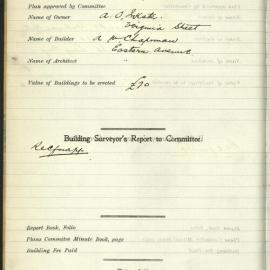 Plan approved by Committee
Name of Owner A. J.
Virginia Street
Name of Builder A W Chapman
Eastern Avenue
Name of Architect "
Value of Buildings to be erected £70
Building Surveyor's Report to Committee.
Report Book, Folio
Plans Committee Minute Book, page
Building Fee Paid